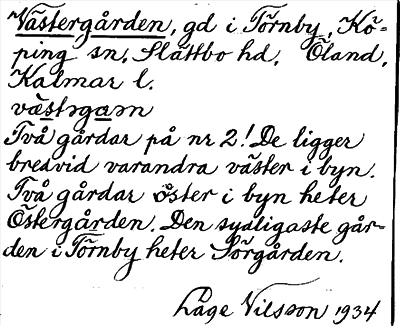 Västergården, gd i Törnby, Kö-
ping sn, Slättbo hd, Öland,
Kalmar l.
Två gårdar på nr 2! De ligger
bredvid varandra väster i byn.
Två gårdar öster i byn heter
Östergården. Den sydligaste går-
den i Törnby heter Sörgården.
Låge Nilsson 1934